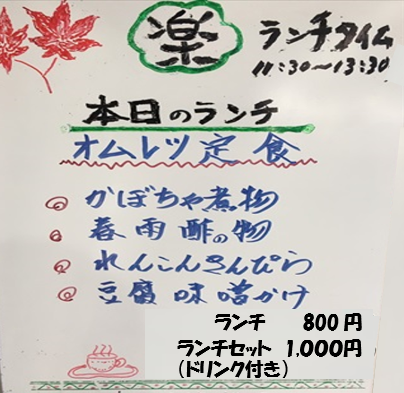 楽 ランチタイム
11:30～13:30
本日のランチ
オムレツ定食
かぼちゃ煮物
春雨酢の物
れんこんきんぴら
豆腐味噌かけ
ランチ 800円
ランチセット 1,000円
(ドリンク付き)